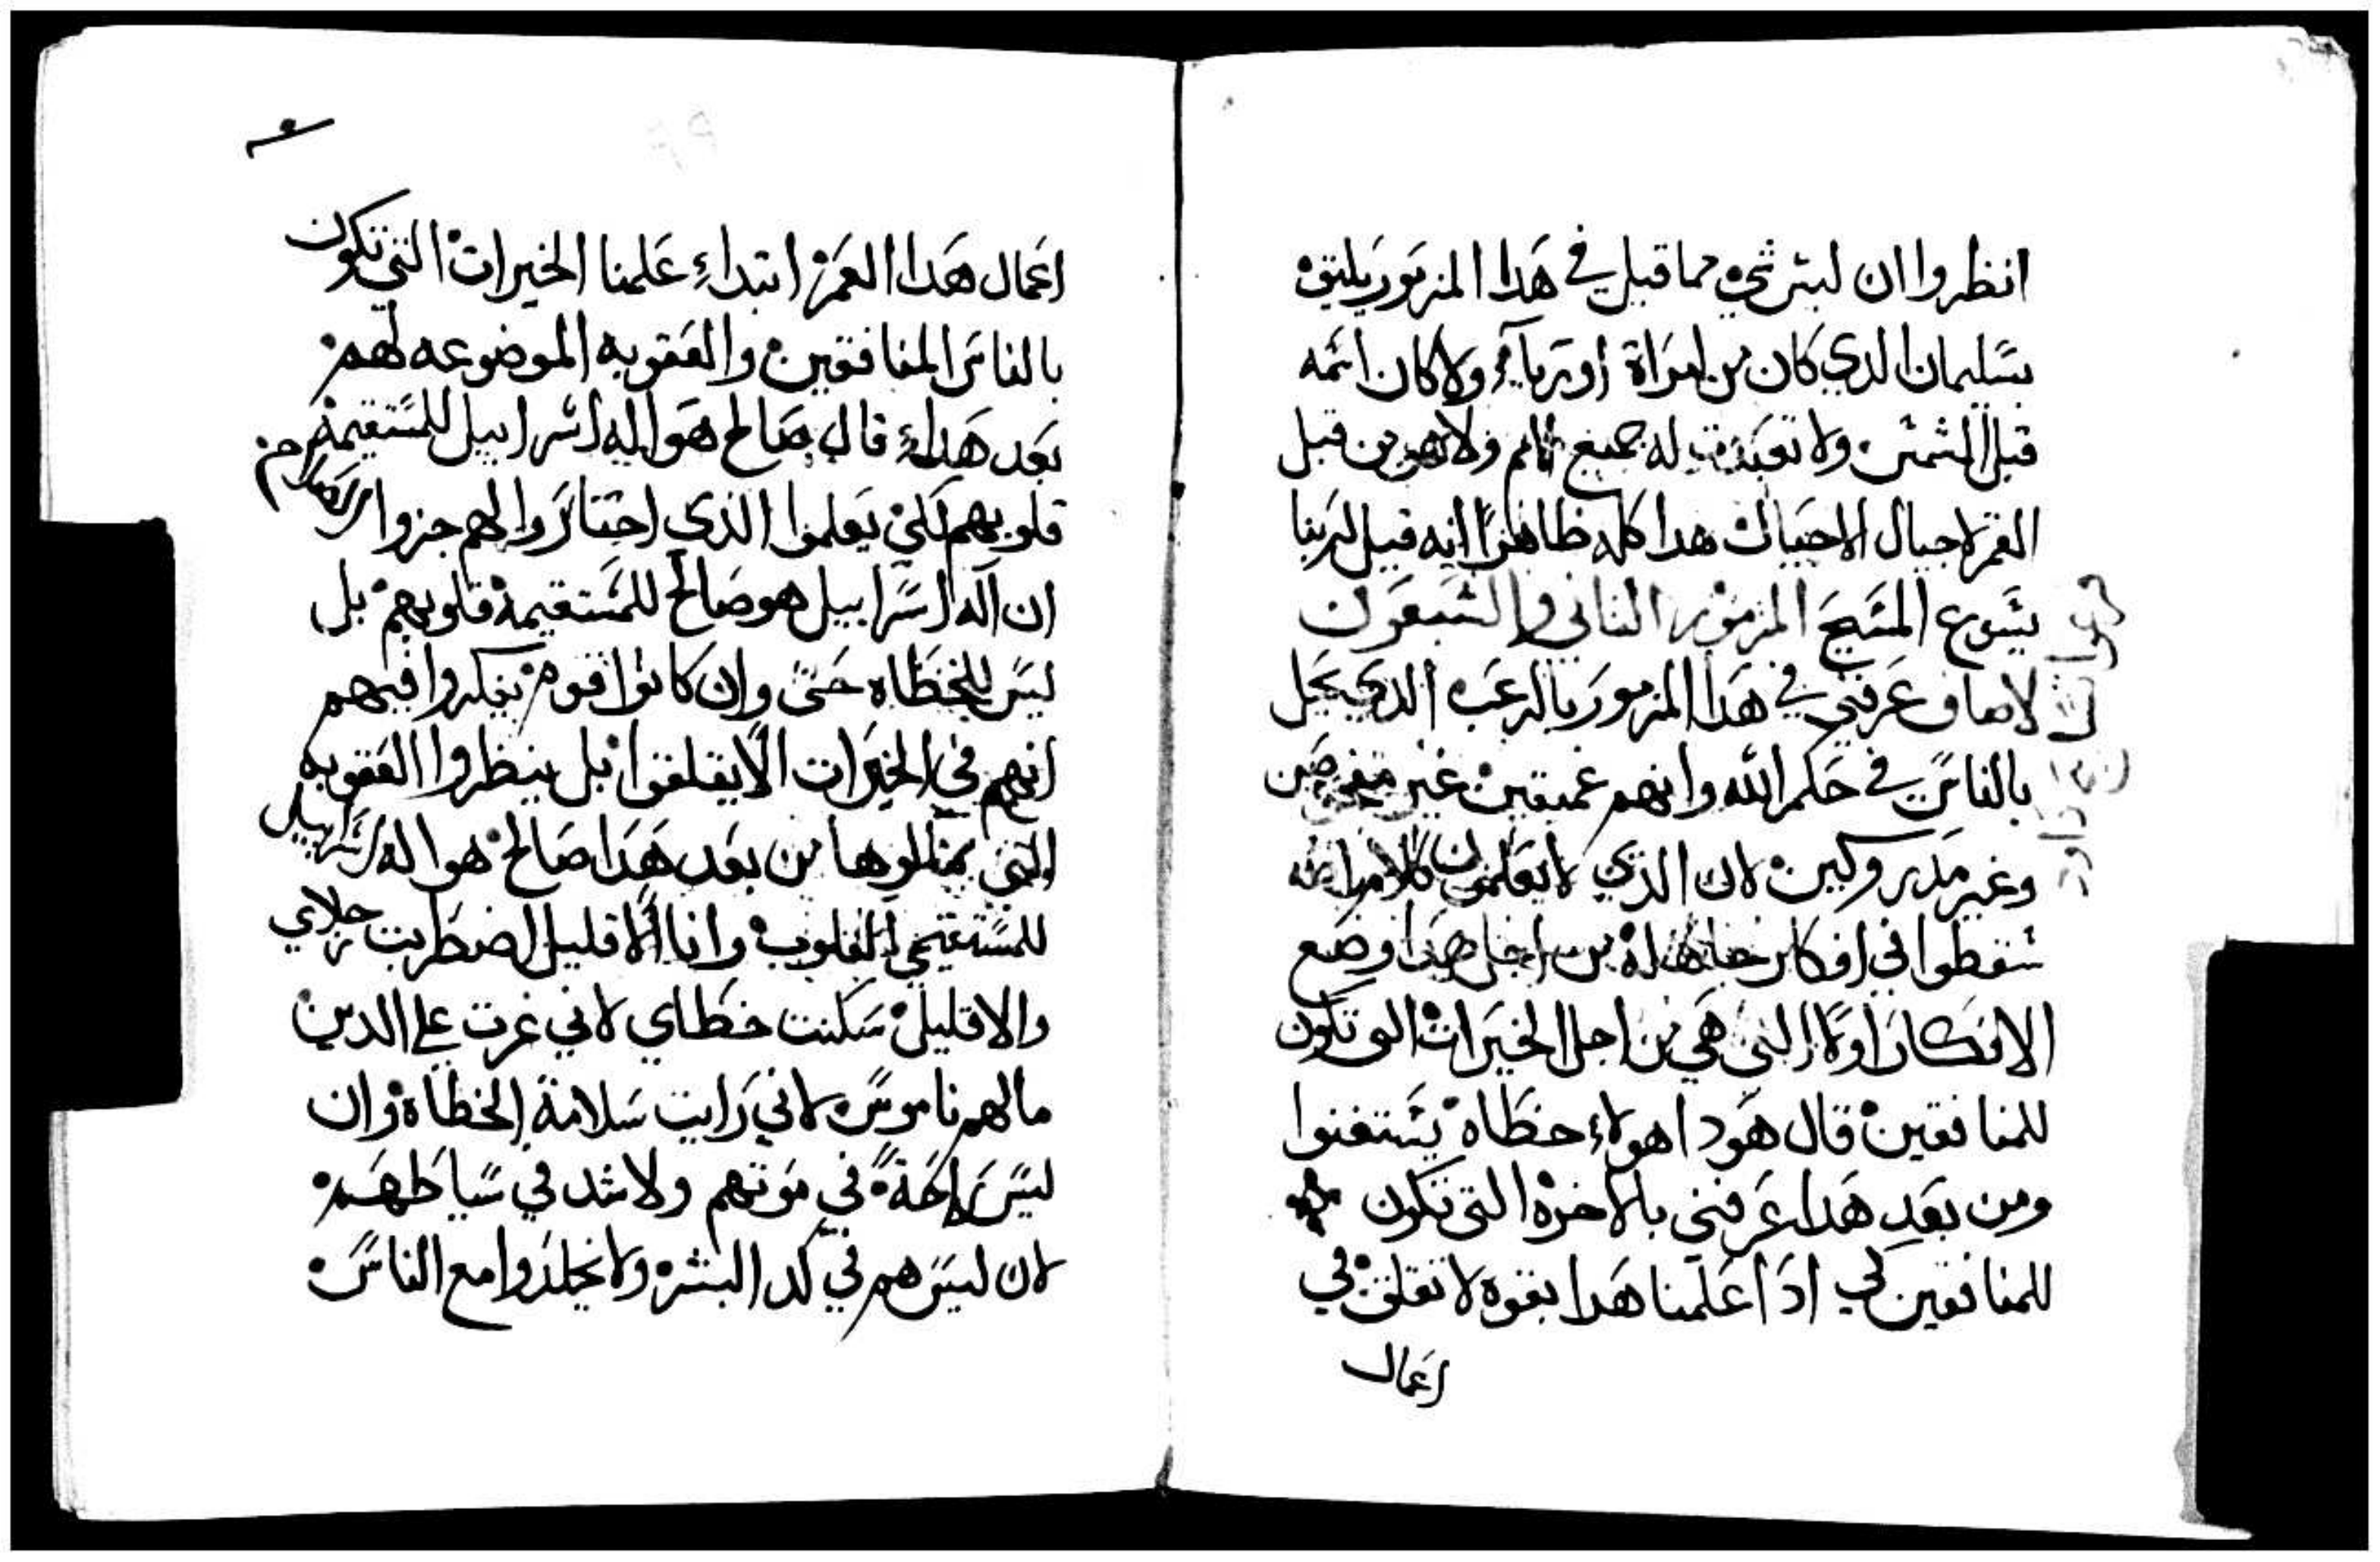 انظروا ان ليس شي مما قيل في هدا المزمور يليق
بسليمان الدي كان من امراة اوريا ولا كان اسمه
قبل الشمس ولا تعبدت له جميع الامم ولا هو من قبل
القمر لاجيال الاجيال هدا كله ظاهرا انه قيل لربنا
يسوع المسيح المزمور التاني والسبعون
لاصاف عرفني في هدا المزمور بالرعب الدي يحل
بالناس في حكم الله وانهم عميقين غير متفحصين
وغير مدروكين لان الذي لا يعلمون كلام الله
سقطوا في افكار من اجل هدا وضع
الافكار اولا التي هي من اجل الخيرات التي تكون
للمنافقين قال هودا هولاء خطاة يستغنوا
ومن بعد هدا عرفني بالاخرة التي تكون
للمنافقين لكي ادا علمنا هدا بقوة لا نقلق في
اعمال
اعمال هدا العمر ابتداء علمنا الخيرات التي تكون
بالناس المنافقين والعقوبه الموضوعه لهم
بعد هدا قال صالح هو اله اسرابيل للمستقيمة
قلوبهم لكي يعلموا الذي احتاروا لهم جزوا الكلام من
ان اله اسرابيل هو صالح للمستقيمة قلوبهم بل
ليس للخطاه حتى وان كانوا قوم يفكروا فيهم
انهم في الخيرات الا يقلقوا بل ينظروا العقوبه
التي ينالوها من بعد هدا صالح هو اله اسرابيل
للمستقيمي القلوب وانا الا قليل اضطربت رجلاي
والا قليل سكنت خطاي لاني غرت على الدين
مالهم ناموس لاني رايت سلامة الخطاة وان
ليس راحة في موتهم ولا شد في سياطهم
لان ليس هم في كد البشر ولا يجلدوا مع الناس